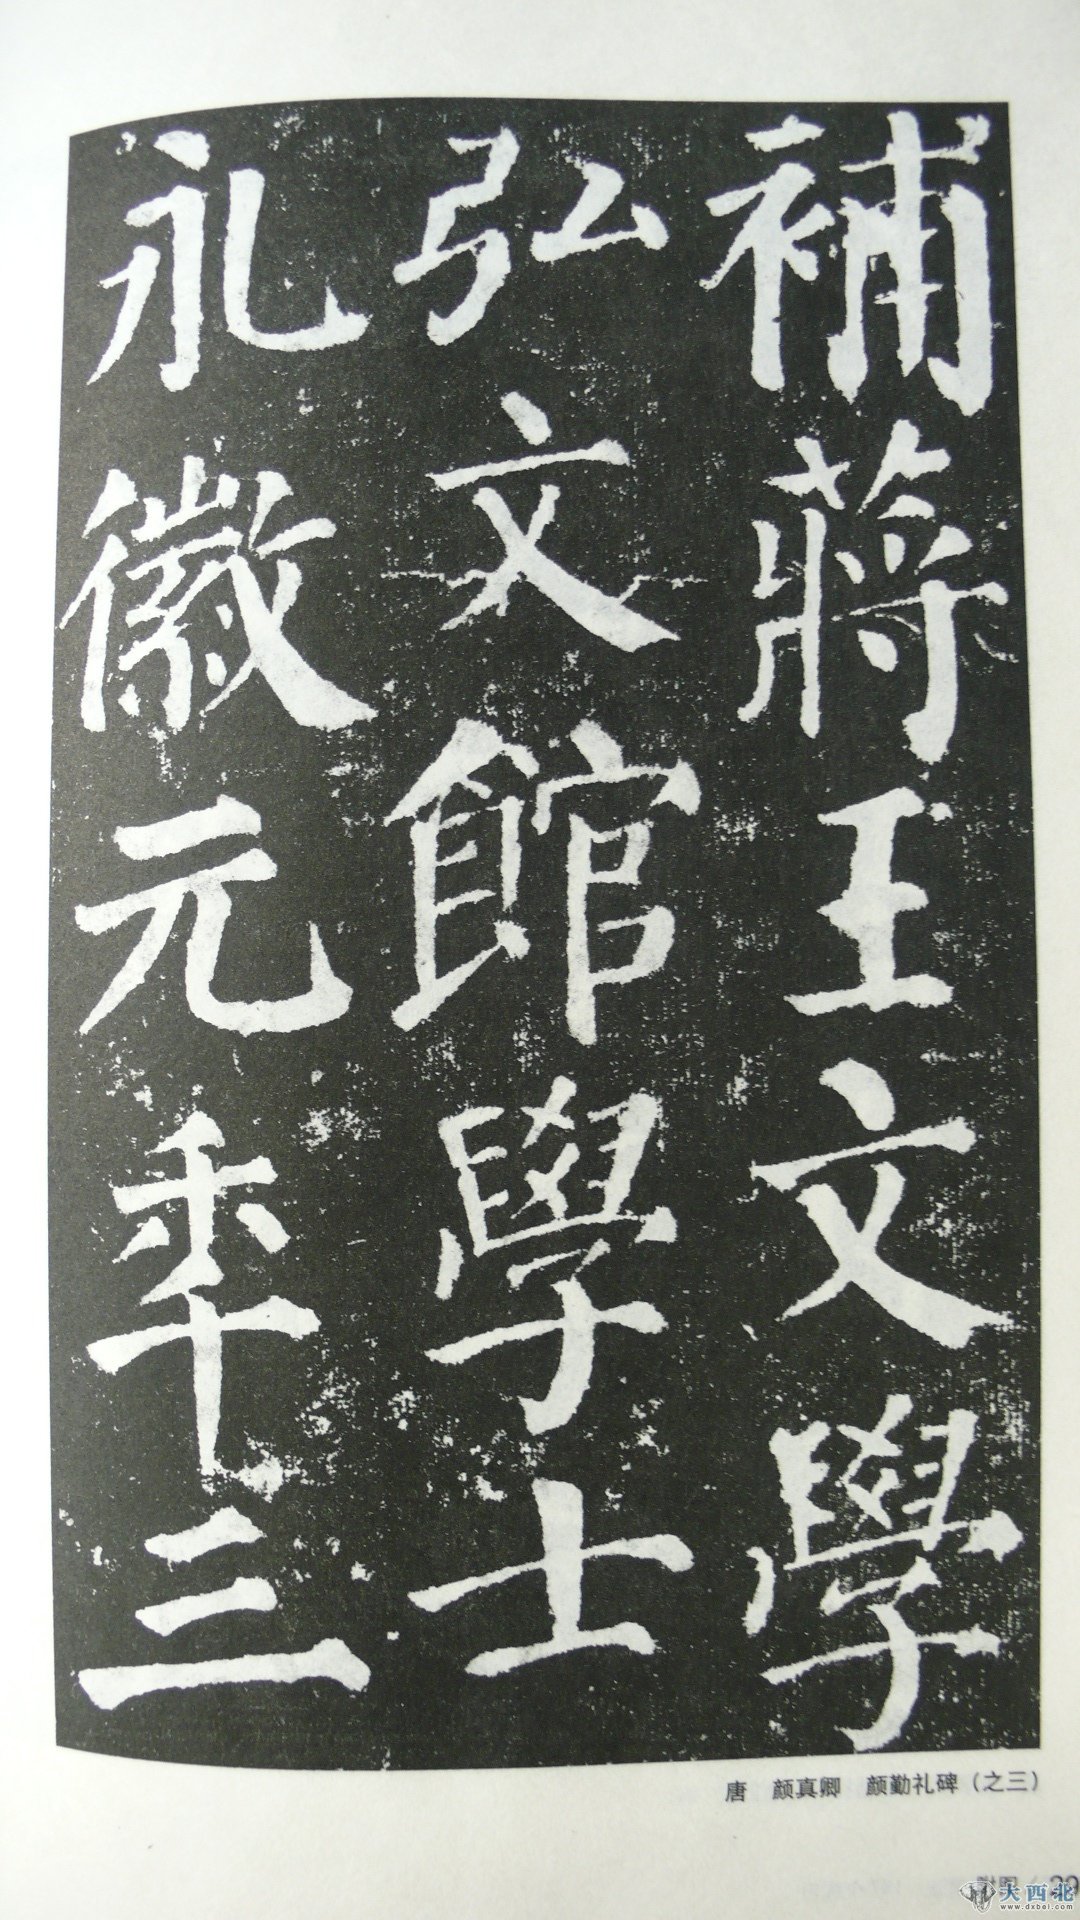 補蔣王文學
弘文館學士
永徽元年三
唐　颜真卿　颜勤礼碑（之三）
附图 29
大西北
www.dxbei.com